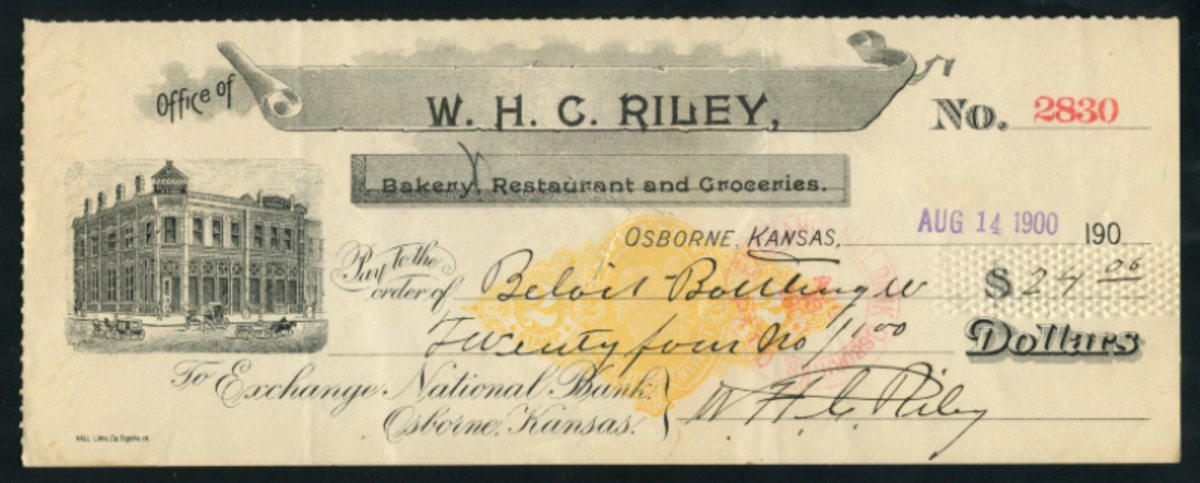 Office of
W. H. C. RILEY,
No. 2830
Bakery, Restaurant and Groceries.
OSBORNE, KANSAS, AUG 14 1900 190
Pay to the order of Beloit Bottling W $24 00
Twenty four No/100 Dollars
To Exchange National Bank,
Osborne, Kansas.
W. H. C. Riley
HALL Litho. Co. Topeka